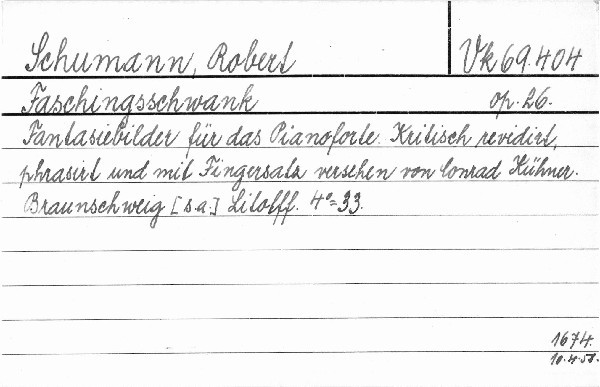 Schumann, Robert Vk 69.404
Faschingsschwank op. 26.
Fantasiebilder für das Pianoforte. Kritisch revidirt,
phrasirt und mit Fingersatz versehen von Conrad Kühner.
Braunschweig [s.a.] Litolff. 4°=33.
1674.
10.4.58.